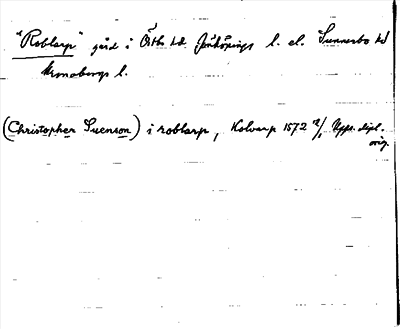 "Roblarp" gård i Östbo hd Jönköpings l. el. Sunnerbo hd
Kronobergs l.
(Christopher Suenson) i roblarp, Kolvarp 1572 2/1 Upps. dipl.
orig.